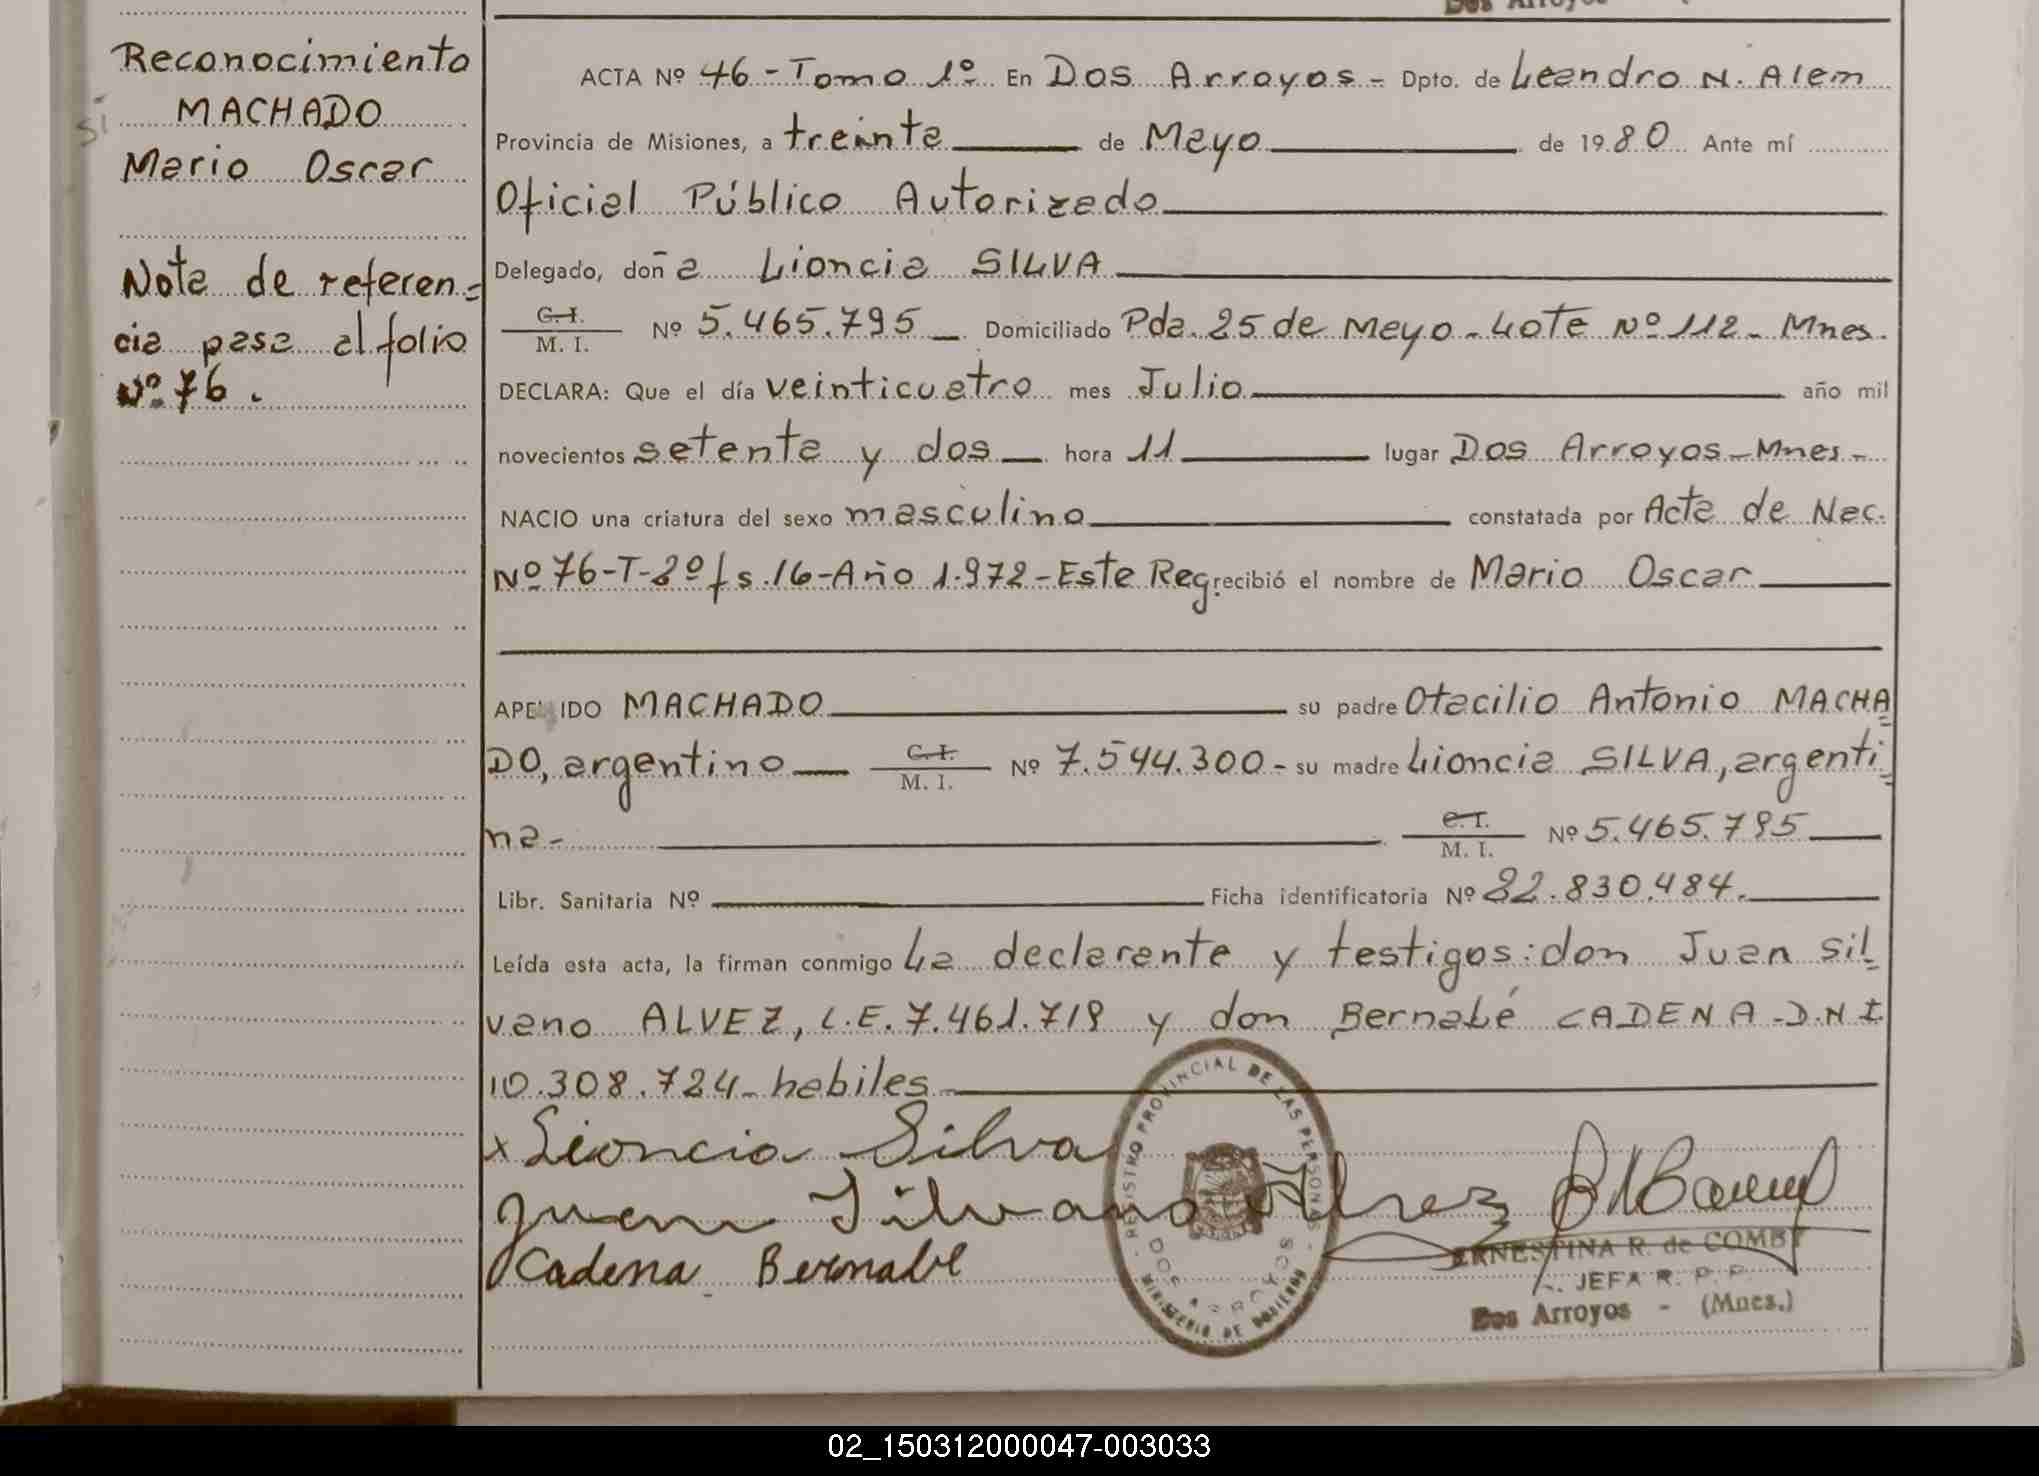 Dos Arroyos
Reconocimiento
MACHADO
Sí
Mario Oscar
Nota de referen=
cia pasa al folio
Nº 76.
ACTA Nº 46 - Tomo 1º En Dos Arroyos - Dpto. de Leandro N. Alem
Provincia de Misiones, a treinta de Mayo de 1980 Ante mí
Oficial Público Autorizado
Delegado, doña Lioncia SILVA
C.I.
M. I. Nº 5.465.795 - Domiciliado Pda. 25 de Mayo - Lote Nº 112 - Mnes.
DECLARA: Que el día veinticuatro mes Julio año mil
novecientos setenta y dos hora 11 lugar Dos Arroyos - Mnes -
NACIO una criatura del sexo masculino constatada por Acta de Nac.
Nº 76-T-2º fs. 16-Año 1.972-Este Reg. recibió el nombre de Mario Oscar
APELLIDO MACHADO su padre Otacilio Antonio MACHA=
DO, argentino C.I.
M. I. Nº 7.544.300 - su madre Lioncia SILVA, argenti=
na - C.I.
M. I. Nº 5.465.795
Libr. Sanitaria Nº Ficha identificatoria Nº 22.830.484.
Leída esta acta, la firman conmigo La declarante y testigos: don Juan Sil
vano ALVEZ, L.E. 7.461.719 y don Bernabé CADENA - D.N.I
10.308.724 - habiles
x Lioncia Silva
Juan Silvano Alvez
Cadena Bernabe
REGISTRO PROVINCIAL DE LAS PERSONAS
DOS ARROYOS
MINISTERIO DE GOBIERNO
ERNESTINA R. de COMBY
JEFA R. P. P.
Dos Arroyos - (Mnes.)
02_150312000047-003033